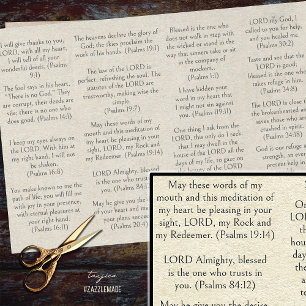 I will give thanks to you,
LORD, with all my heart;
I will tell of all your
wonderful deeds. (Psalms
9:1)
The fool says in his heart,
"There is no God." They
are corrupt, their deeds are
vile; there is no one who
does good. (Psalms 14:1)
I keep my eyes always on
the LORD. With him at
my right hand, I will not
be shaken.
(Psalms 16:8)
You makes known to me the
path of life; you will fill me
with joy in your presence,
with eternal pleasures at
your right hand.
(Psalms 16:11)
The heavens declare the glory of
God; the skies proclaim the
work of his hands. (Psalms 19:1)
The law of the LORD is
perfect, refreshing the soul. The
statutes of the LORD are
trustworthy, making wise the
simple.
(Psalms 19:7)
May these words of my
mouth and this meditation of
my heart be pleasing in your
sight, LORD, my Rock and
my Redeemer. (Psalms 19:14)
LORD Almighty, blessed
is the one who trusts in
you. (Psalms 84:12)
May he give you the
of your heart and
your plans succeed.
Blessed is the one who
does not walk in step with
the wicked or stand in the
way that sinners take or sit
in the company of
mockers.
(Psalms 1:1)
I have hidden your
word in my heart that
I might not sin against
you. (Psalms 119:11)
One thing I ask from the
LORD, this only do I seek:
that I may dwell in the
house of the LORD all the
days of my life, to gaze on
LORD my God, I
called to you for help,
and you healed me.
(Psalms 30:2)
Taste and see that the
LORD is good;
blessed is the one who
takes refuge in him.
(Psalms 34:8)
God is our refuge and
strength, an ever
present help in
May these words of my
mouth and this meditation of
my heart be pleasing in your
sight, LORD, my Rock and
my Redeemer. (Psalms 19:14)
LORD Almighty, blessed
is the one who trusts in
you. (Psalms 84:12)
May he give you the desire
#ZAZZLEMADE